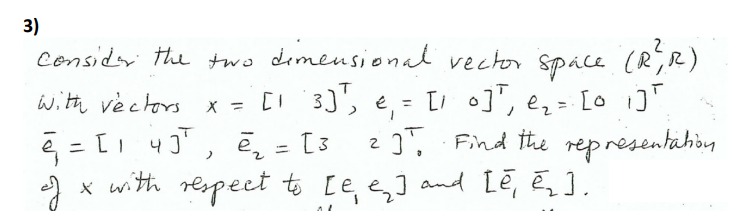 3)
Consider the two dimensional vector space (R², R)
with vectors x = [1 3]ᵀ, e₁ = [1 0]ᵀ, e₂ = [0 1]ᵀ
ē₁ = [1 4]ᵀ, ē₂ = [3 2]ᵀ. Find the representation
of x with respect to [e₁ e₂] and [ē₁ ē₂].